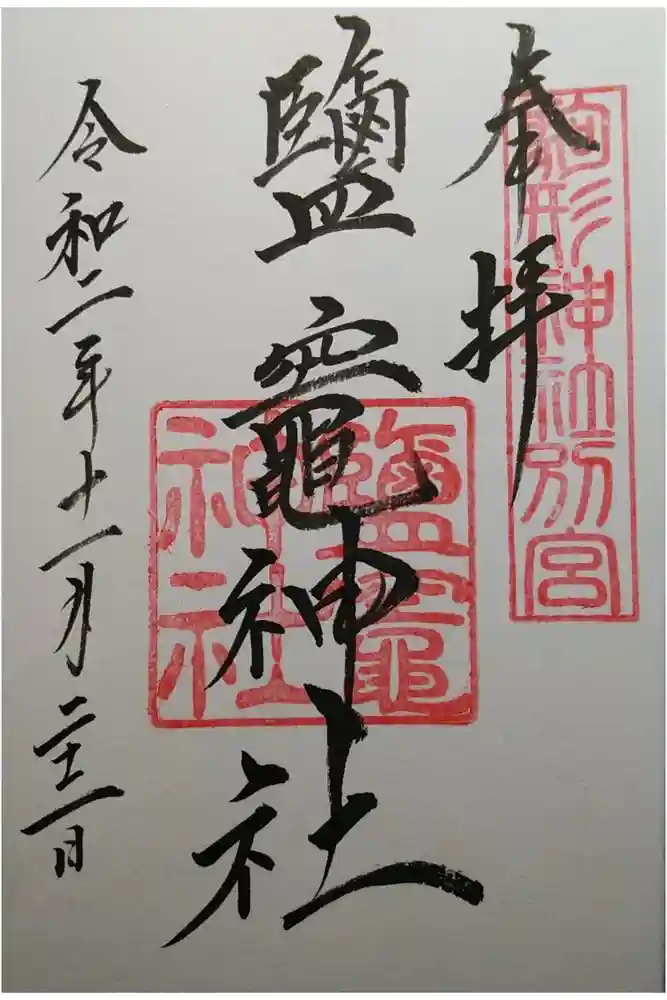 奉拝
駒形神社別宮
鹽竈神社
鹽竈神社
令和二年十一月二十一日